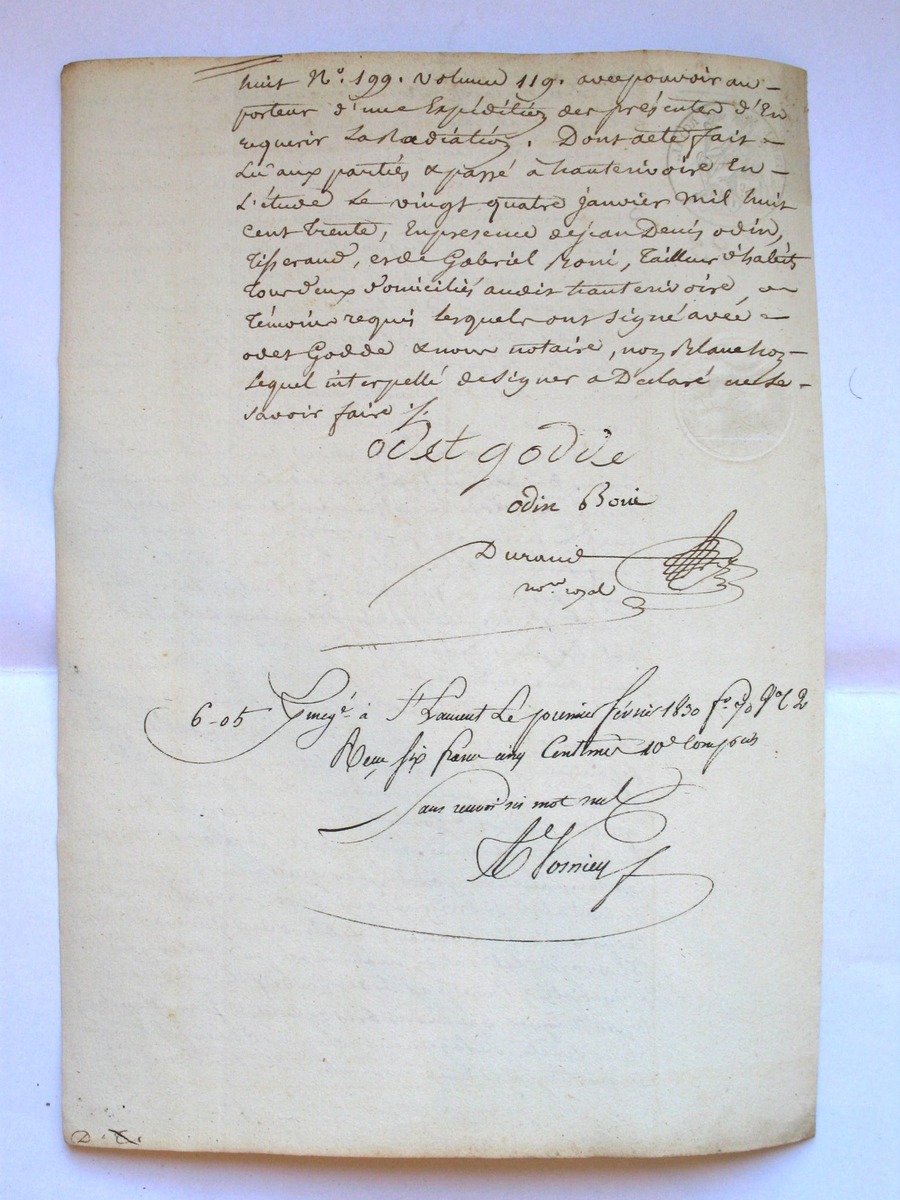 huit N°. 199. volume 119. avec pouvoir au -
porteur d'une Expédition des présentes d'En
requerir La Radiation. Dont acte fait -
Lu aux parties & passé à hauterivoire En -
L'étude Le vingt quatre janvier Mil huit
Cent trente, En présence de jean Denis odin,
Tisserand, et de Gabriel Boni, Tailleur d'habits
Tous deux domiciliés audit hauterivoire,
Témoins requis Lesquels ont signé avec -
odet Godde & nous notaire, non Blanchon -
Lequel interpellé de signer a Déclaré ne Le -
savoir faire ./.
odet godde
odin Boni
Durand
nore. royal
6-05 Enregé. à St Laurent Le premier février 1830 fo. 70
Reçu six francs cinq Centimes 10e Compris
Sans renvoi ni mot nul
D. T.